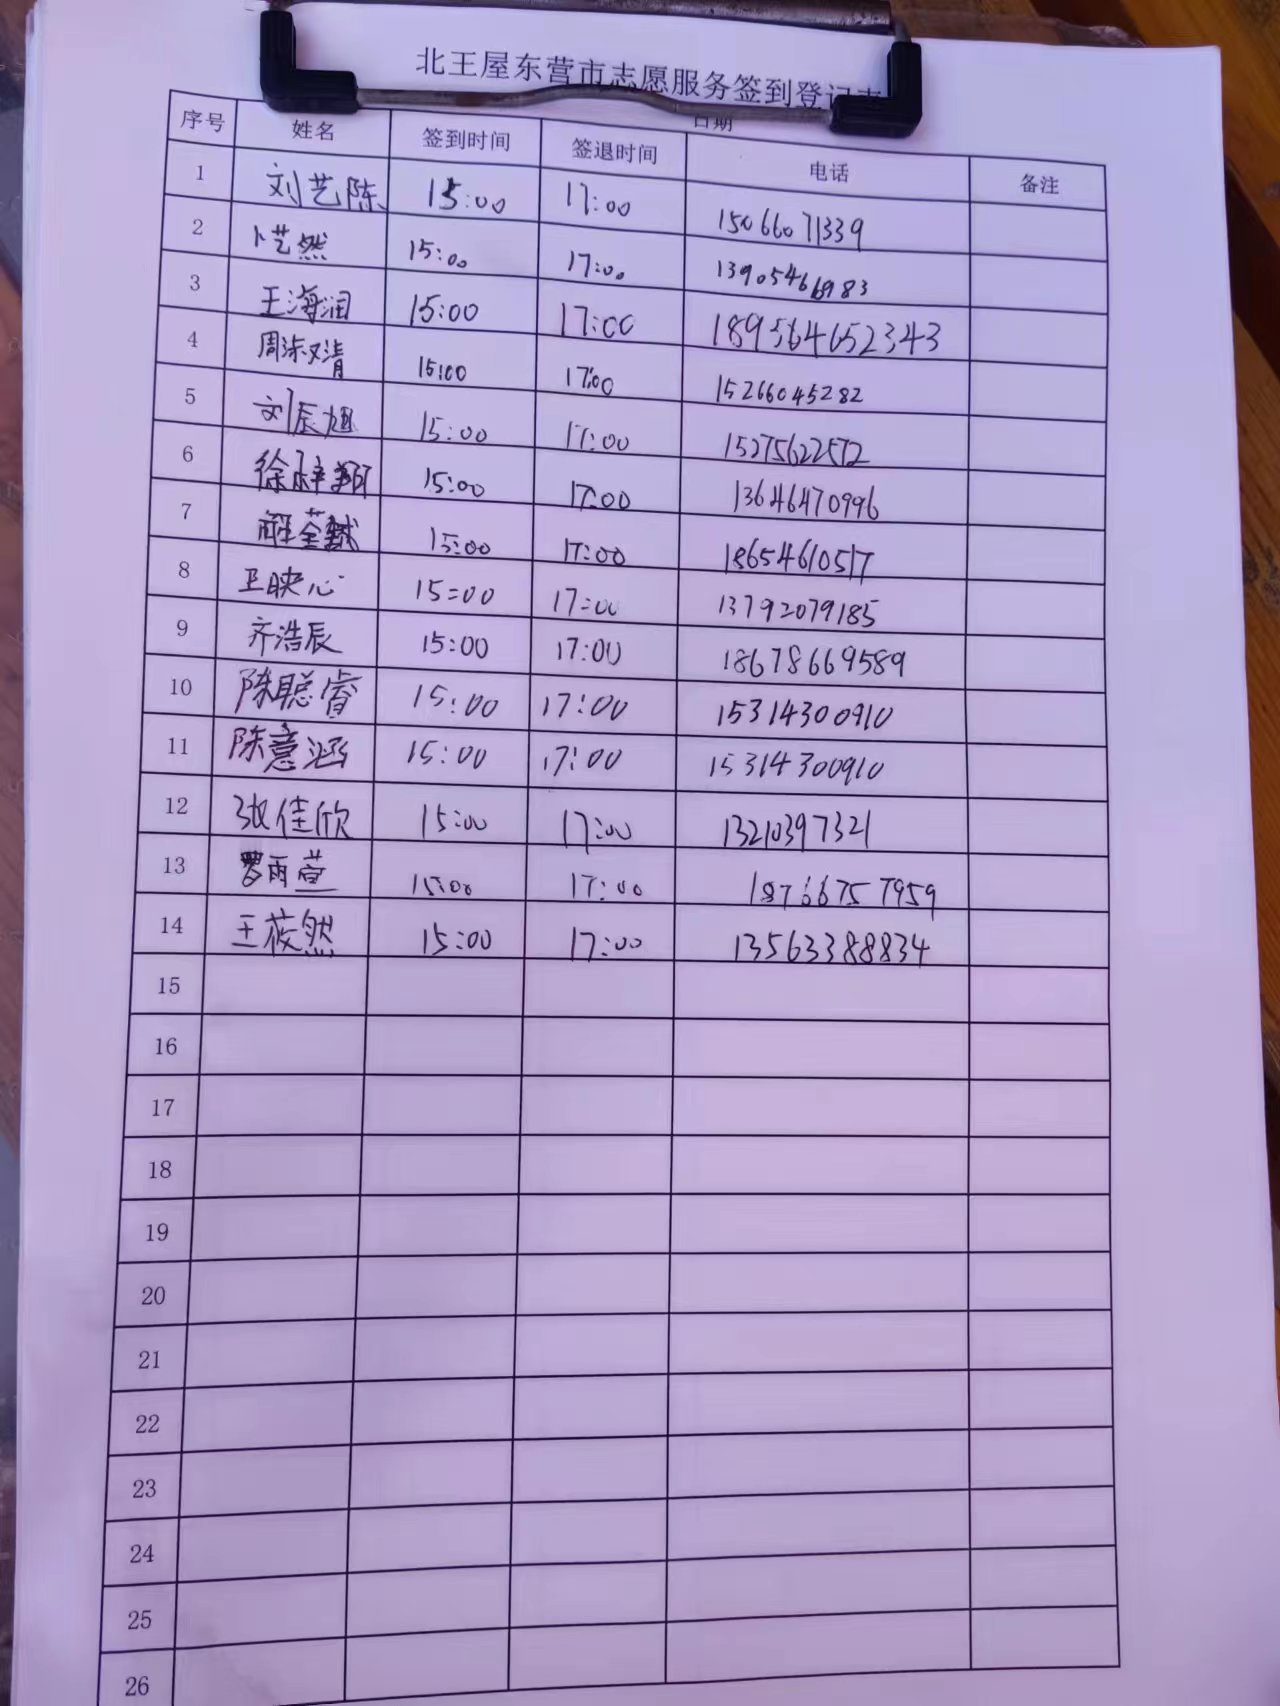 北王屋东营市志愿服务签到登记表
日期
序号 姓名 签到时间 签退时间 电话 备注
1 刘艺陈 15:00 17:00 15066071339
2 卜艺然 15:00 17:00 13905466983
3 王海润 15:00 17:00 189564652343
4 15:00 17:00 15266045282
5 刘辰旭 15:00 17:00 15275622572
6 徐梓翔 15:00 17:00 13646470996
7 15:00 17:00 18654610517
8 卫映心 15:00 17:00 13792079185
9 齐浩辰 15:00 17:00 18678669589
10 陈聪睿 15:00 17:00 15314300910
11 陈意涵 15:00 17:00 15314300910
12 张佳欣 15:00 17:00 13210397321
13 罗雨萱 15:00 17:00 18766757959
14 王莜然 15:00 17:00 13563388834
15
16
17
18
19
20
21
22
23
24
25
26